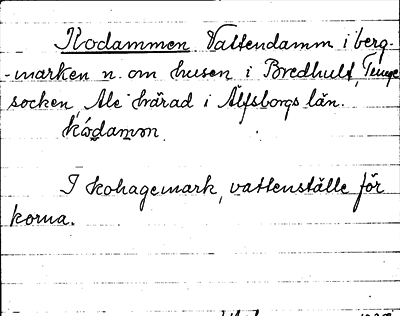 Kodammen Vattendamm i berg-
-marken n. om husen i Bredhult,
socken Ale härad i Älfsborgs län.
kodamm
I kohagemark, vattenställe för
korna.